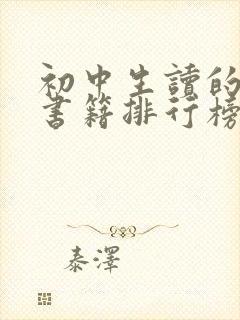 初中生讀的
書籍排行榜
泰澤